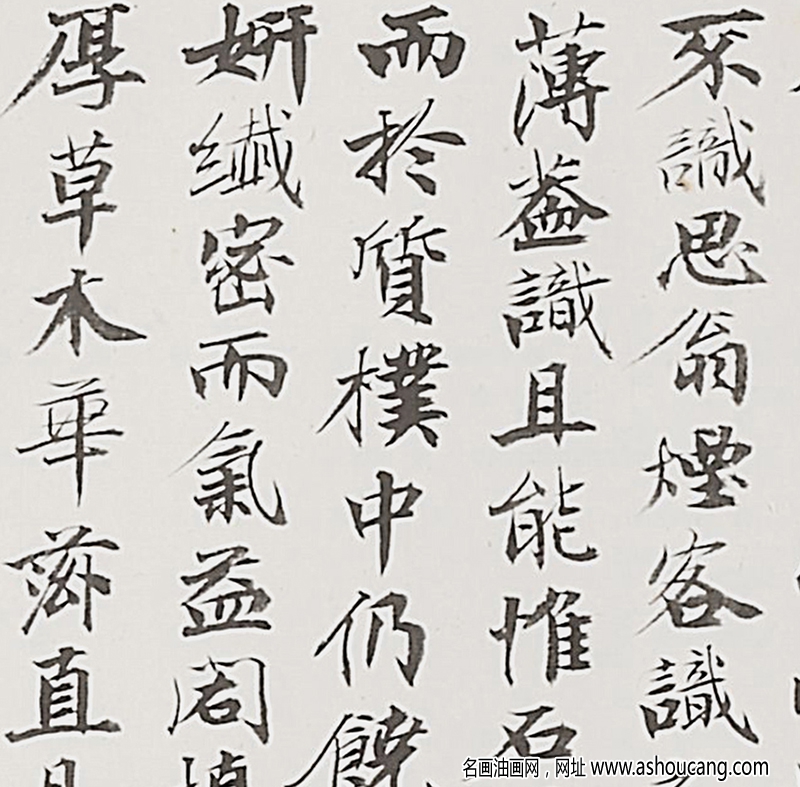 不識思翁煙客識
薄葢識且能惟石
而於質樸中仍饒
妍纖密而氣益閎
厚草木華滋直
名画油画网，网址 www.ashoucang.com